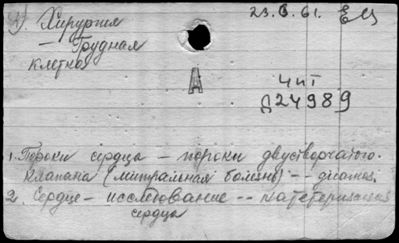 23.6.61. ЕМ
Хирургия
— Грудная
клетка
А
Чит
Д24989
1. Пороки сердца — пороки двустворчатого
клапана (митральная болезнь) -- диагноз.
2. Сердце — исследование -- катетеризация
сердца